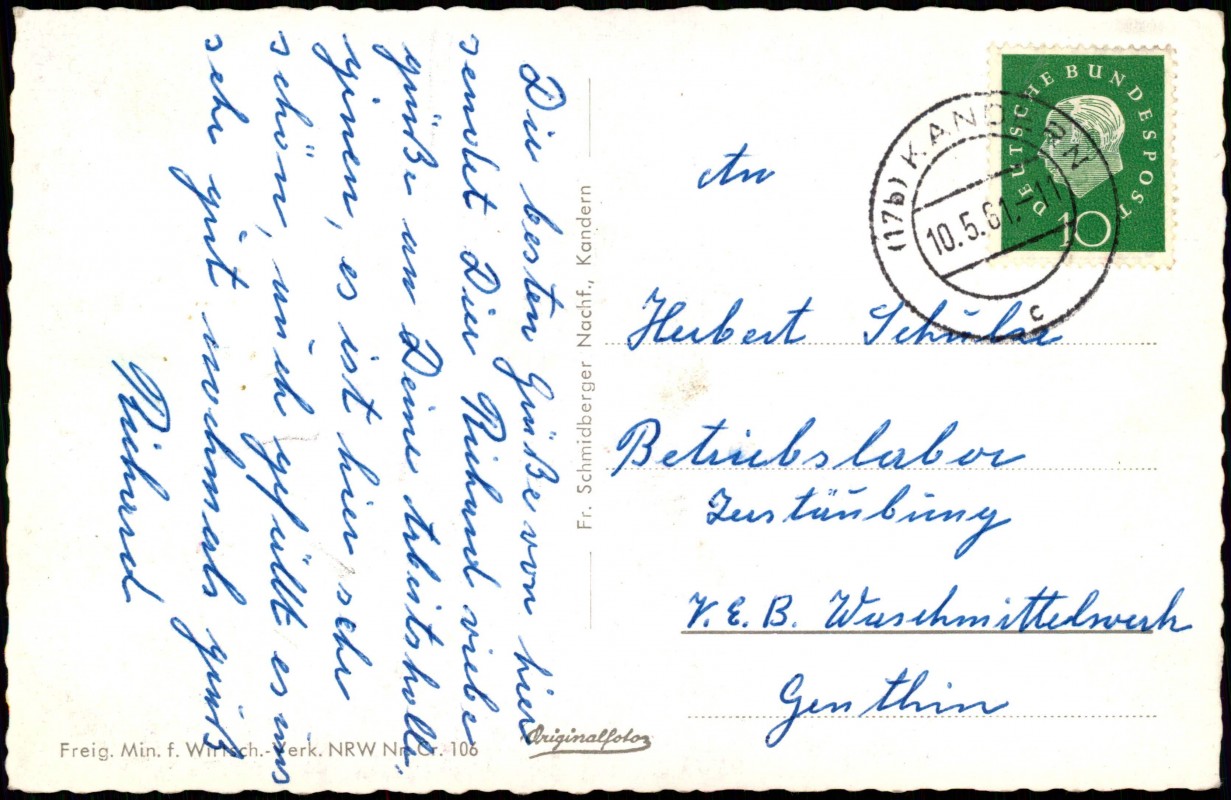 Die besten Grüße von hier
sendet Dier Richard viele
grüße an Deine Arbeitskolle.
ginen, es ist hier sehr
schön, mich gefällt es uns
sehr gut nochmals gruß
Richard
Fr. Schmidberger Nachf., Kandern
Freig. Min. f. Wirtsch.-Verk. NRW Nr. Cr. 106
Originalfotoz
DEUTSCHE BUNDESPOST
10
(17b) KANDERN
10.5.61.-11
c
An
Herbert Schulze
Betriebslabor
Zerstäubung
V.E.B. Waschmittelwerk
Genthin